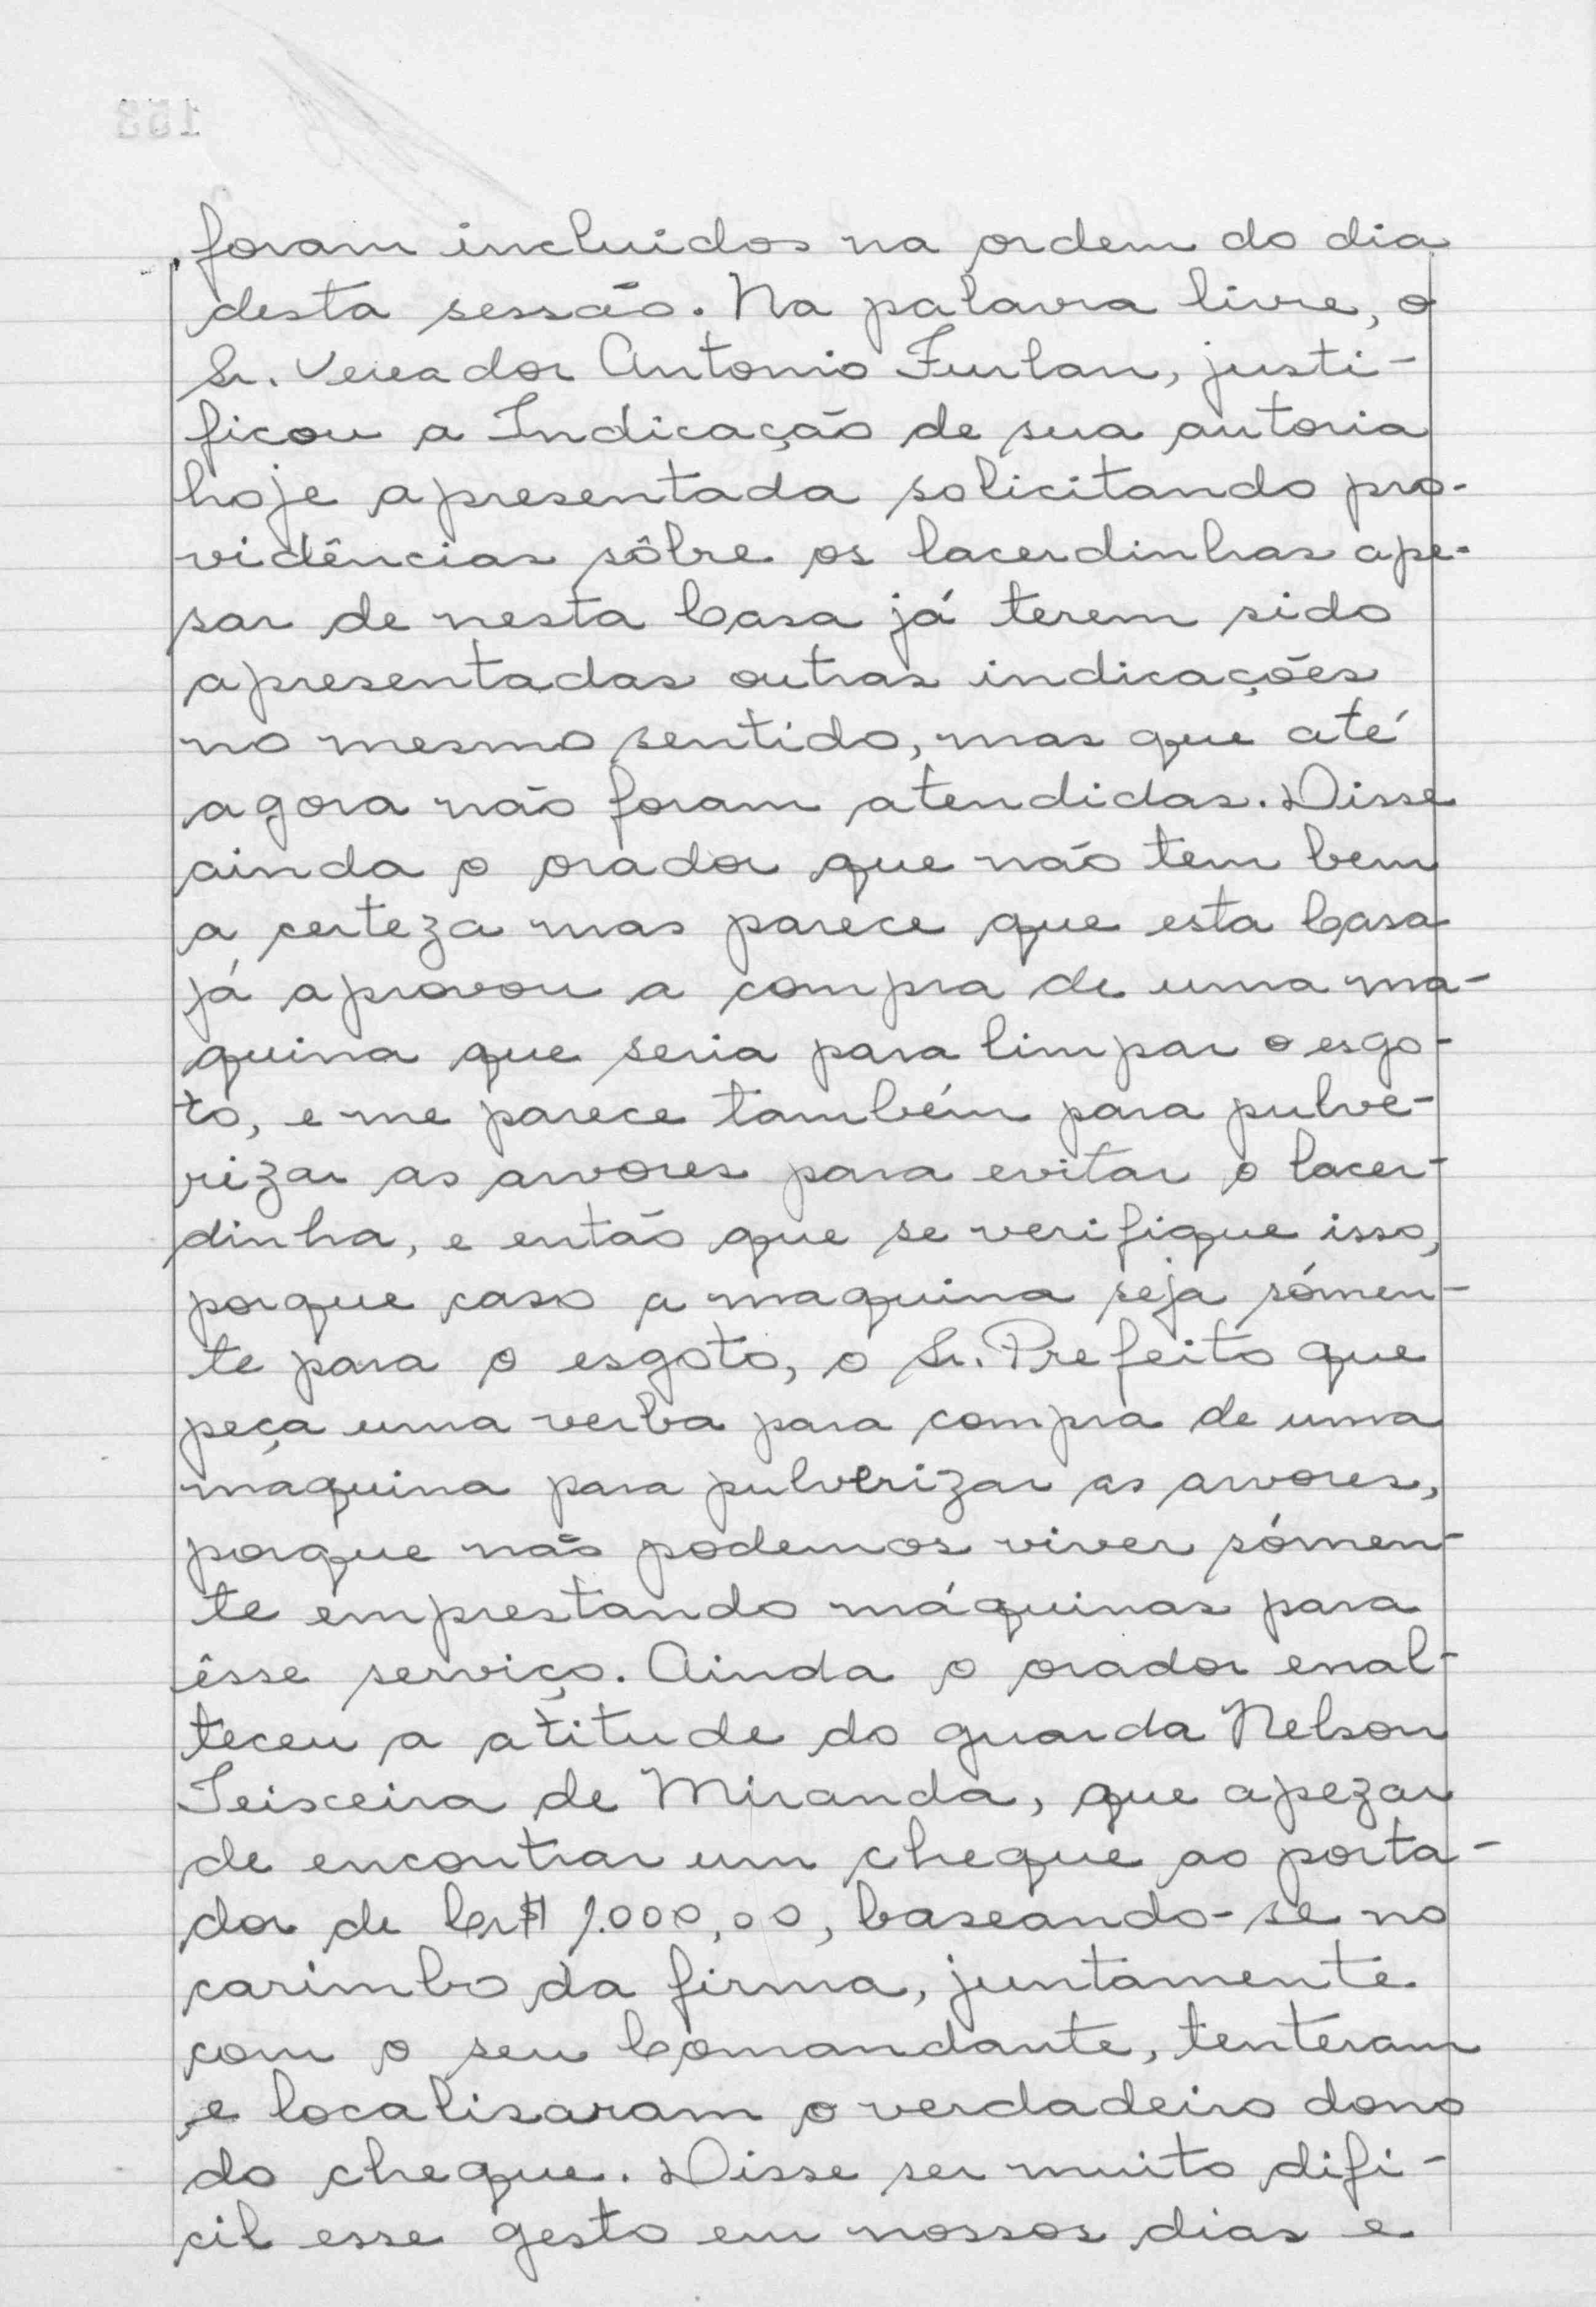 foram incluidos na ordem do dia
desta sessão. Na palavra livre, o
Sr. Vereador Antonio Furlan, justi-
ficou a Indicação de sua autoria
hoje apresentada solicitando pro-
vidências sôbre os lacerdinhas ape-
sar de nesta Casa já terem sido
apresentadas outras indicações
no mesmo sentido, mas que até
agora não foram atendidas. Disse
ainda o orador que não tem bem
a certeza mas parece que esta Casa
já aprovou a compra de uma ma-
quina que seria para limpar o esgo-
to, e me parece também para pulve-
rizar as arvores para evitar o lacer-
dinha, e então que se verifique isso,
porque caso a maquina seja sómen-
te para o esgoto, o Sr. Prefeito que
peça uma verba para compra de uma
máquina para pulverizar as arvores,
porque não podemos viver sómen-
te emprestando máquinas para
êsse serviço. Ainda o orador enal-
teceu a atitude do guarda Nelson
Teixeira de Miranda, que apezar
de encontrar um cheque ao porta-
dor de Cr$ 1.000,00, baseando-se no
carimbo da firma, juntamente
com o seu Comandante, tenteram
e localisaram o verdadeiro dono
do cheque. Disse ser muito difi-
cil esse gesto em nossos dias e